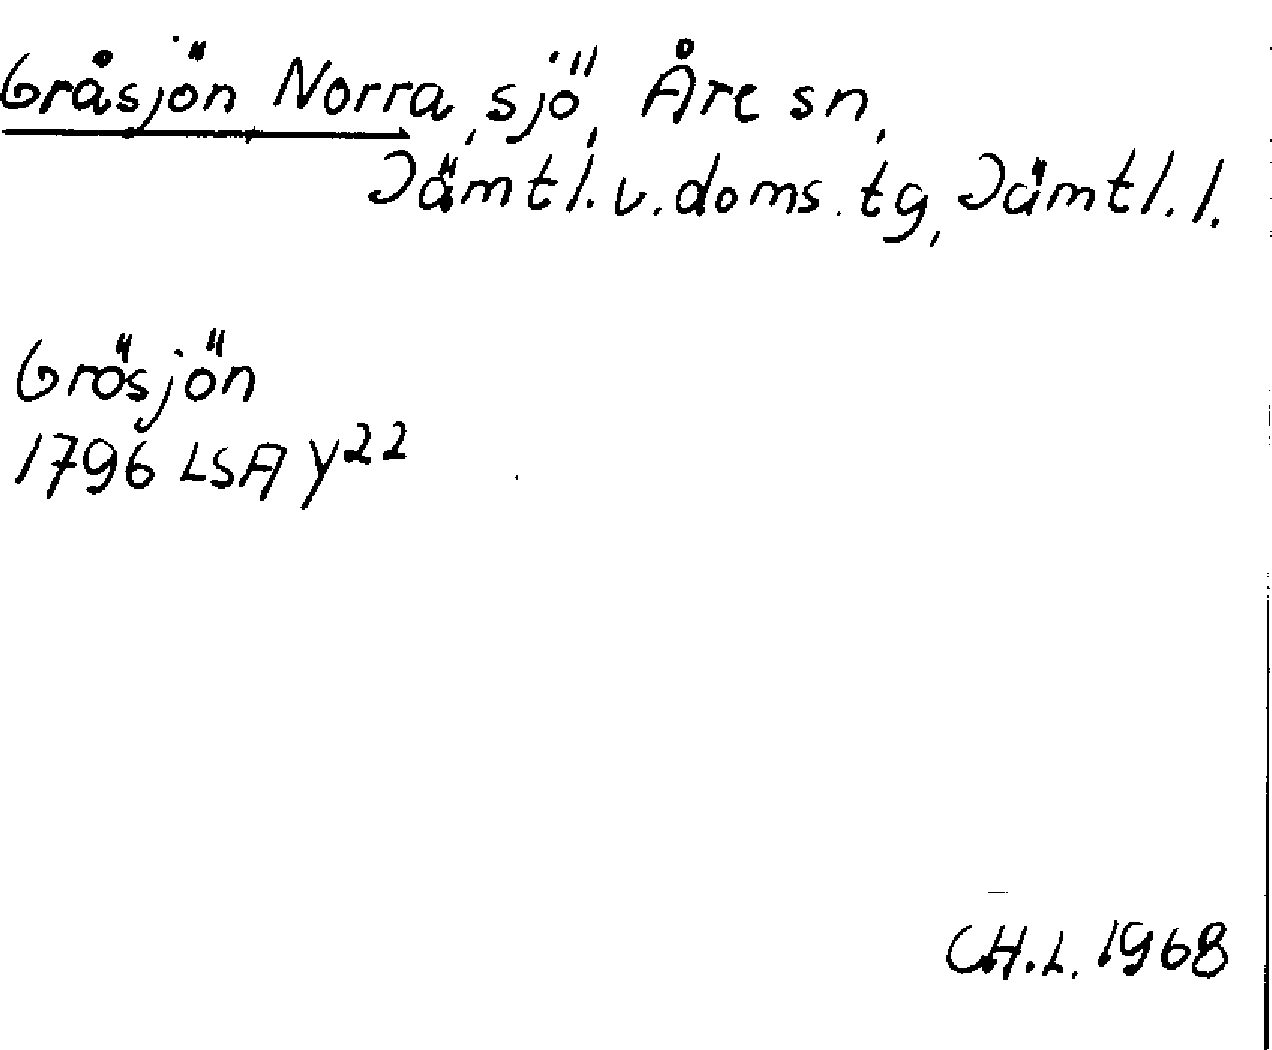 Gråsjön, Norra, sjö, Åre sn,
Jämtl. v. doms. tg, Jämtl. l.
Grösjön
1796 LSA Y22
C.H.L. 1968